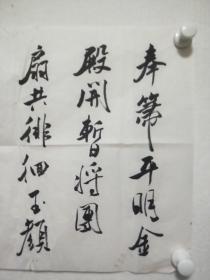 奉箒平明金
殿開暫將團
扇共徘徊玉顏